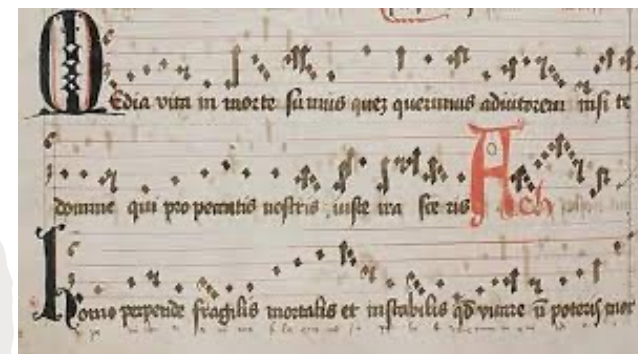 Media vita in morte sumus quez querimus adiutorem nisi te
domine qui pro peccatis nostris iuste ira sce ris Ach
homo perpende fragilis mortalis et instabilis qd vivere n poteris mor